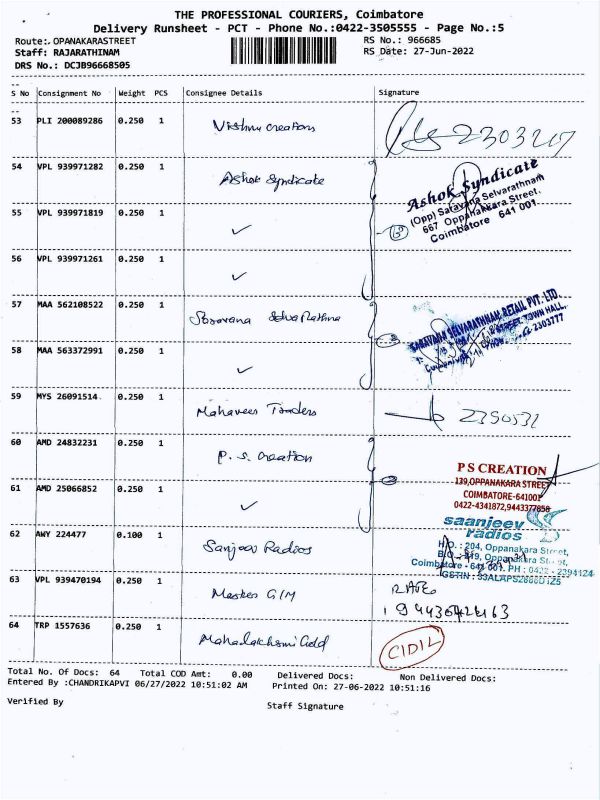 THE PROFESSIONAL COURIERS, Coimbatore
Delivery Runsheet - PCT - Phone No.:0422-3505555 - Page No.:5
Route:. OPANAKARASTREET
RS No.: 966685
Staff: RAJARATHINAM
RS Date: 27-Jun-2022
DRS No.: DCJB96668505
S No Consignment No Weight PCS Consignee Details Signature
53 PLI 200089286 0.250 1 Vishnu Creations 2303207
54 VPL 939971282 0.250 1 Ashok Syndicate
Ashok Syndicate
(Opp) Saravana Selvarathnam
667 Oppanakkara Street,
Coimbatore 641 001
55 VPL 939971819 0.250 1 ✓ 3
56 VPL 939971261 0.250 1 ✓
57 MAA 562108522 0.250 1 Saravana Selva Rathna
SARAVANA SELVARATHNAM RETAIL PVT. LTD
STREET, TOWN HALL,
2303777
58 MAA 563372991 0.250 1 ✓
59 MYS 26091514 0.250 1 Mahaveer Traders 2350531
60 AMD 24832231 0.250 1 P. S. Creation
P S CREATION
139,OPPANAKARA STREET
COIMBATORE-641001
0422-4341872,9443377858
61 AMD 25066852 0.250 1 ✓
62 AWY 224477 0.100 1 Sanjeev Radios
saanjeev
radios
H.O. : 204, Oppanakara Street,
B.O. : 819, Oppanakara Street,
Coimbatore - 641 001. PH : 0422 - 2394124
63 VPL 939470194 0.250 1
64 TRP 1557636 0.250 1 Mahalakshmi Gold
Total No. Of Docs: 64 Total COD Amt: 0.00 Delivered Docs: Non Delivered Docs:
Entered By :CHANDRIKAPVI 06/27/2022 10:51:02 AM Printed On: 27-06-2022 10:51:16
Verified By
Staff Signature